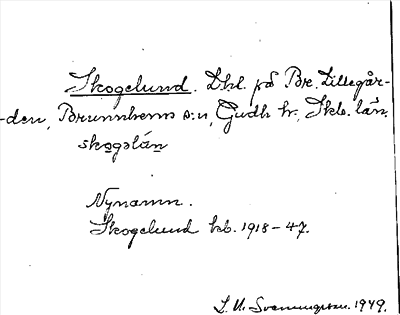 Skogelund. Lhl. på Br. Lillegår-
-den, Brunnhems s:n, Gudh hr, Skb. län.
skogslán
Nynamn.
Skogelund kb. 1918-47.
S. U. Svenungsson. 1949.